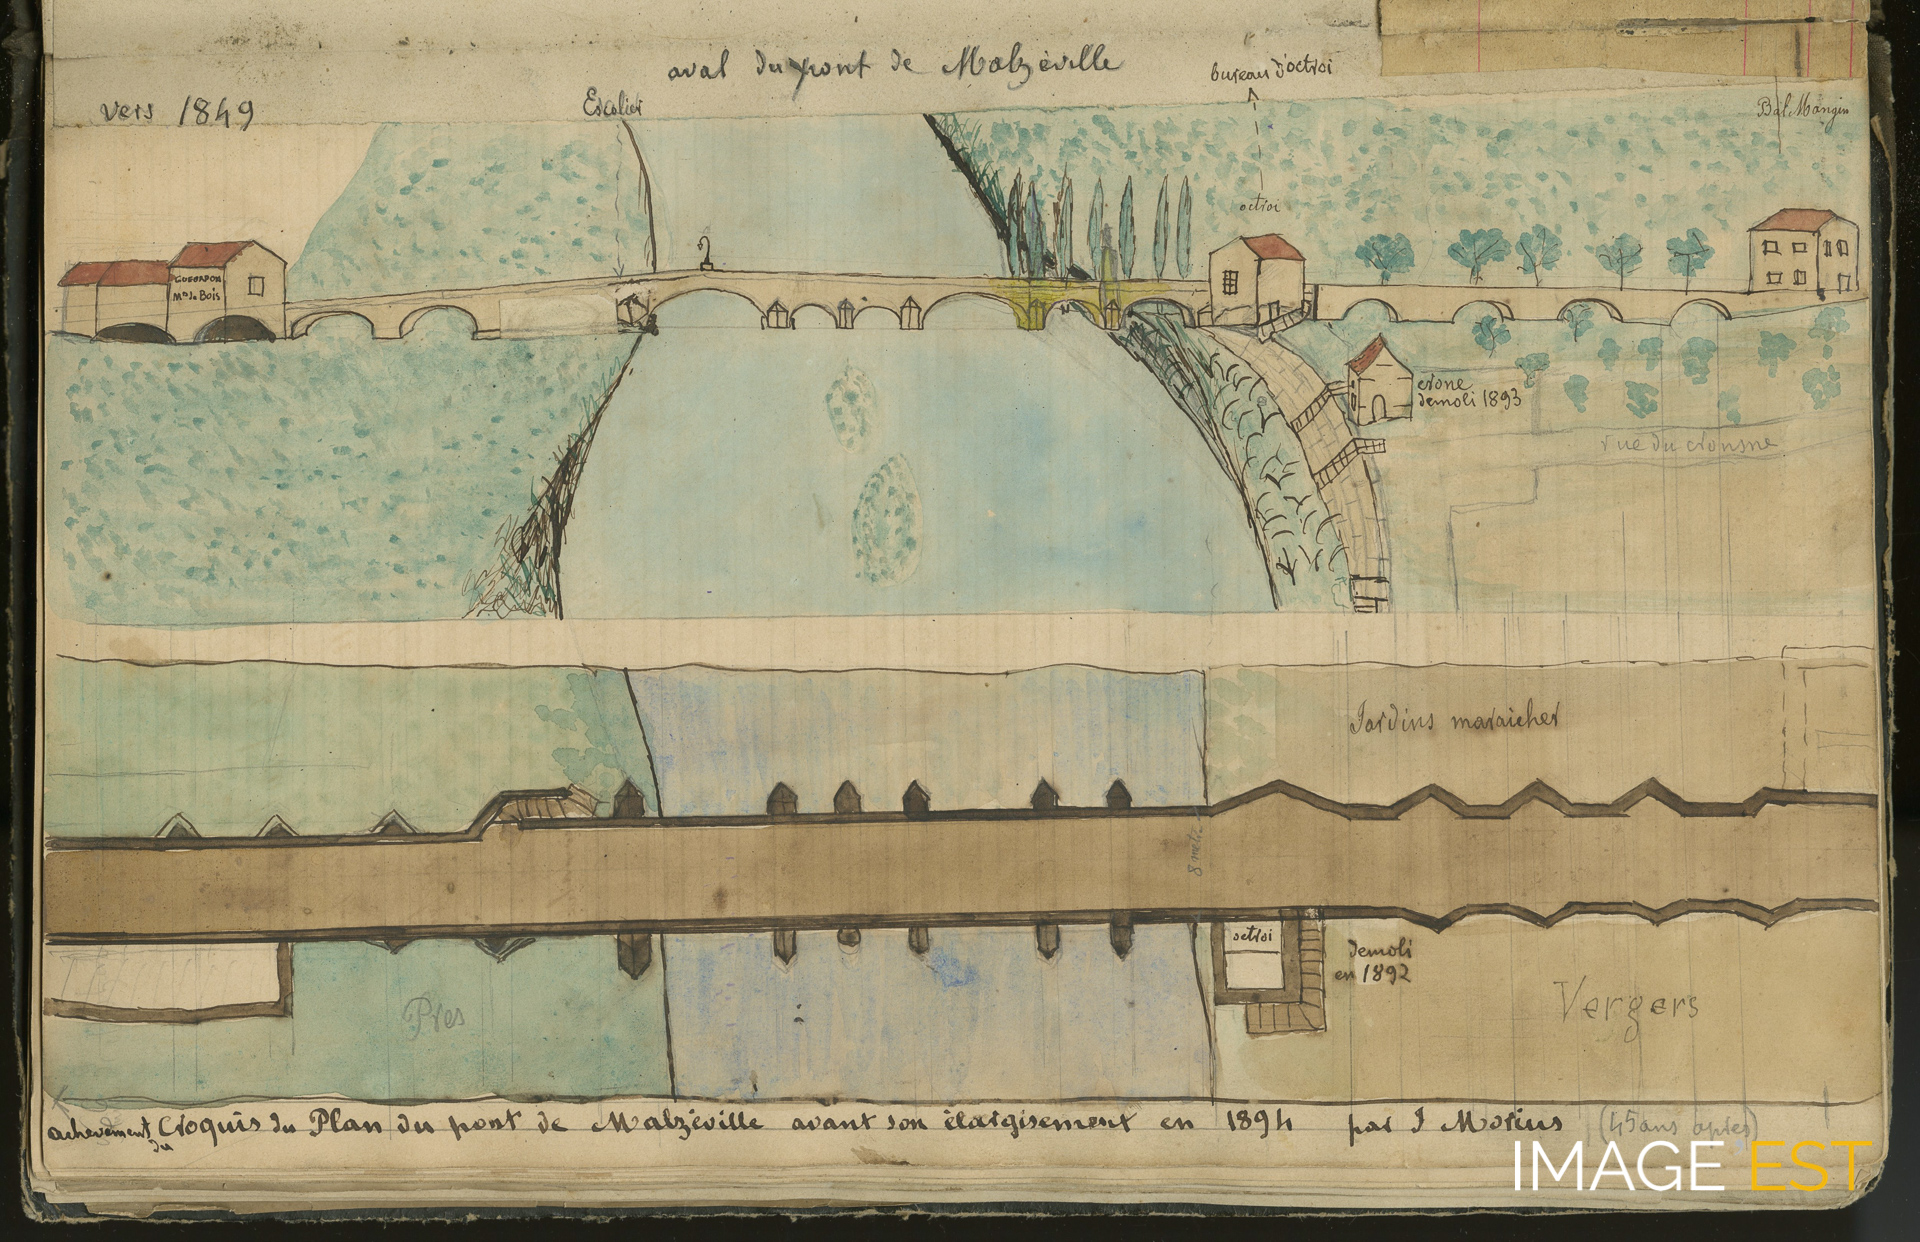 aval du pont de Malzéville
bureau d'octroi
vers 1849
Escalier
Bal Mangin
octroi
GUEORPON
Md de Bois
crone
demoli 1893
rue du crousne
Jardins maraicher
8 met
octroi
demoli
en 1892
Prés
Vergers
achevement du Croquis du Plan du pont de Malzéville avant son élargisement en 1894 par J Morius (45 ans après)
IMAGE EST